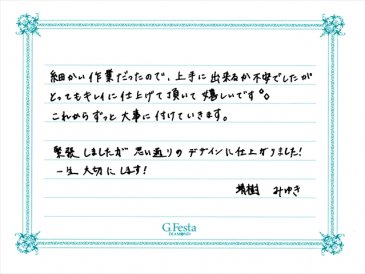 細かい作業だったので、上手に出来るか不安でしたが
とってもキレイに仕上げて頂いて嬉しいです。
これからずっと大事に付けていきます。
緊張しましたが思い通りのデザインに仕上がりました!
一生大切にします!
樹 みゆき
G.Festa
DIAMOND